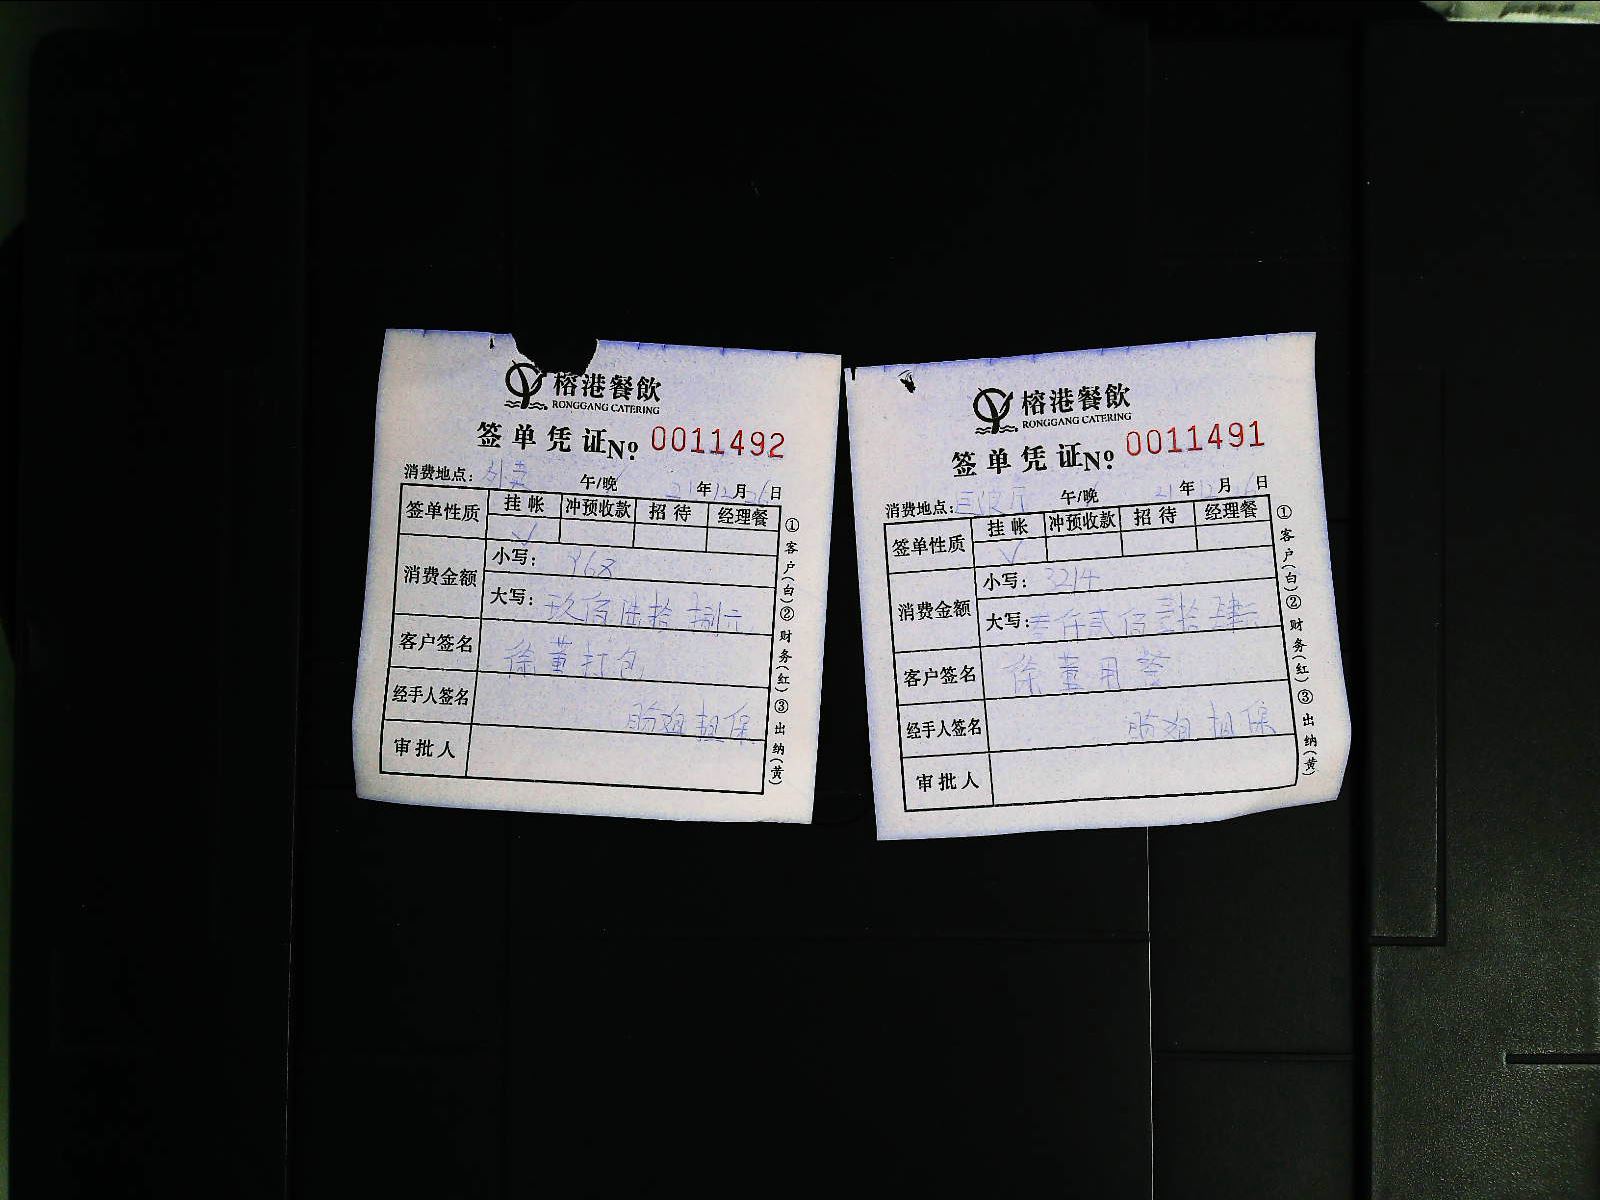 榕港餐飲
RONGGANG CATERING
签单凭证№ 0011492
消费地点：外卖 午/晚 21年12月26日
签单性质 挂帐 冲预收款 招待 经理餐
√
消费金额 小写：968
大写：玖佰陆拾捌元
客户签名 徐董打包
经手人签名 担保
审批人
①客户(白)②财务(红)③出纳(黄)
榕港餐飲
RONGGANG CATERING
签单凭证№ 0011491
消费地点： 午/晚 21年12月 日
签单性质 挂帐 冲预收款 招待 经理餐
√
消费金额 小写：3214
大写：叁仟贰佰壹拾肆元
客户签名 徐董用餐
经手人签名 担保
审批人
①客户(白)②财务(红)③出纳(黄)